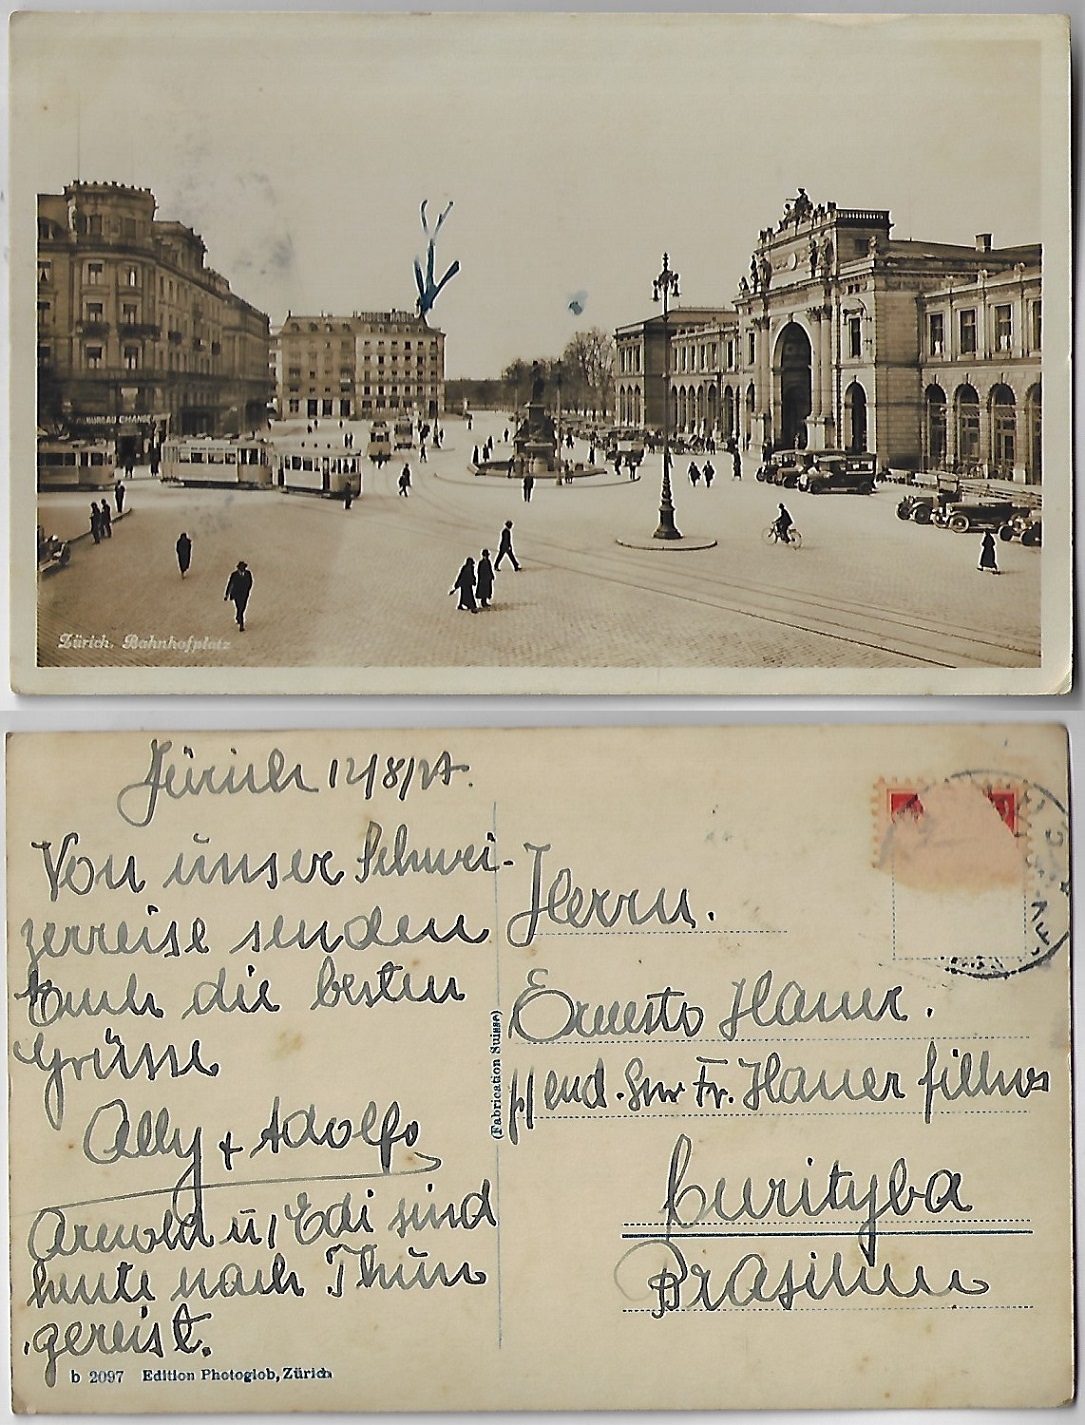 BUREAU CHANGE
Zürich, Bahnhofplatz
Zürich 12/8/27.
Von unser Schwei-
zerreise senden
Euch die besten
Grüsse
Ally + Adolfo
Arnold u, Edi sind
heute nach Thun
gereist.
b 2097 Edition Photoglob, Zürich
(Fabrication Suisse)
Herrn.
Ernesto Hauer.
p/ end. Snr Fr. Hauer filhos
Curityba
Brasilien